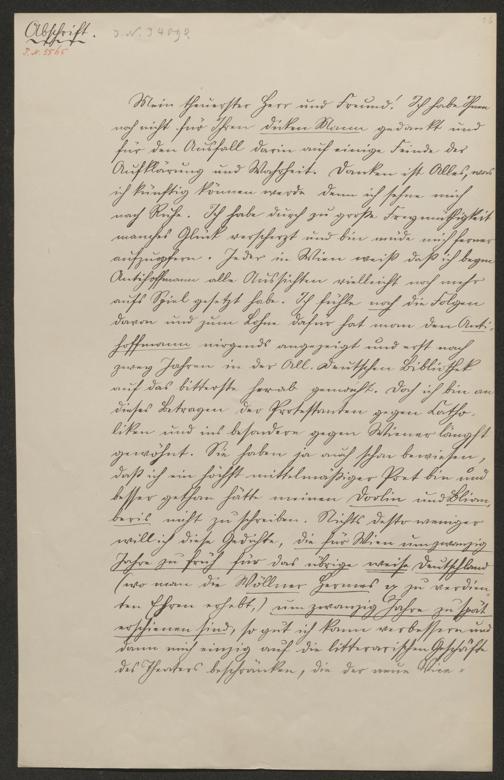 Abschrift.
J. N. 34092
J. N. 5565
Mein theuerster Herr und Freund! Ich habe Ihnen
noch nicht für Ihren dicken Mann gedankt und
für den Ausfall darin auf einige Feinde der
Aufklärung und Wahrheit. Danken ist Alles, was
ich künftig können werde denn ich sehne mich
nach Ruhe. Ich habe durch zu große Freymüthigkeit
manches Glück verscherzt und bin müde mich ferner
aufzuopfern. Jeder in Wien weiß daß ich beym
Antihoffmann alle Aussichten vielleicht noch mehr
aufs Spiel gesetzt habe. Ich fühle noch die Folgen
davon und zum Lohne dafür hat man den Anti-
hoffmann nirgends angezeigt und erst nach
zwey Jahren in der All. deutschen Bibliothek
auf das bitterste herab gemacht. Doch ich bin an
dieses Betragen der Protestanten gegen Katho-
liken und ins besondere gegen Wiener längst
gewöhnt. Sie haben ja auch schon bewiesen,
daß ich ein höchst mittelmäßiger Poet bin und
besser gethan hätte meinen Doolin und Bliom-
beris nicht zu schreiben. Nichts desto weniger
will ich diese Gedichte, die für Wien um zwanzig
Jahre zu früh für das übrige weise Deutschland
(wo man die Müllner Hermes zu verdien-
ten Ehren erhebt,) um zwanzig Jahre zu spät
erschienen sind, so gut ich kann verbessern und
dann mich einzig auf die litterarischen Geschäfte
des Theaters beschränken, die der neue Vice-